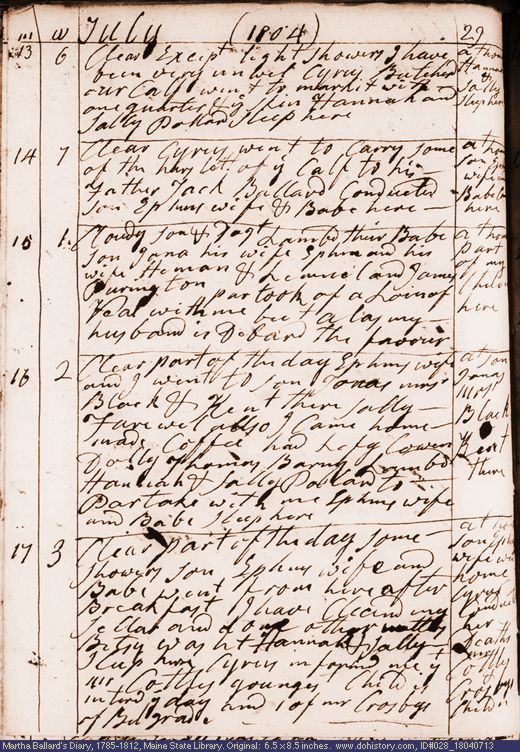 m w July (1804) 29
13 6 Clear Except light showers I have at home
been very unwel Cyrus Butcherd Hannah
our Calf went to market with &
one quarter & ye skin Hannah and Sally
Sally Pollard sleep here sleep here
14 7 Clear Cyrus went to Carry some at home
of the hary let of ye Calf to his son Eph
Father Jack Ballard Conducted wife
son Ephms wife & Babe here Babe here
15 1 Cloudy son & Dagt Lambd thier Babe at home
son Jona his wife Ephm and his part
wife Heman & Lemuel and James of my
Purington partook of a Loin of Chil
Veal with me but alas my here
husband is Debard the favour
16 2 Clear part of the day Ephms wife at son
and I went to son Jonas mrs Jonas
Black & Kent there Sally mrs
Farewel allso I Came home Black
made Coffee had Cowen Kent
Dolly Thomas Barny Lambd there
Hannah & Sally Pollard to
Partake with me Ephms wife
and Babe sleep here
17 3 Clear part of the day some at home
showers son Ephms wife and son Ephms
Babe went from here after wife went
Breakfast I have Cleand my home
sellar and done other matters Cyrus
Betsy washt Hannah & Sally
sleep here Cyrus informd me yt her
mr youngest Child is Deaths
interd this day and 1 of mr Crosbys
of Belgrade Crosbys Child
Martha Ballard's Diary, 1785-1812, Maine State Library. Original: 6.5 x 8.5 inches. www.dohistory.com, ID#028_18040713